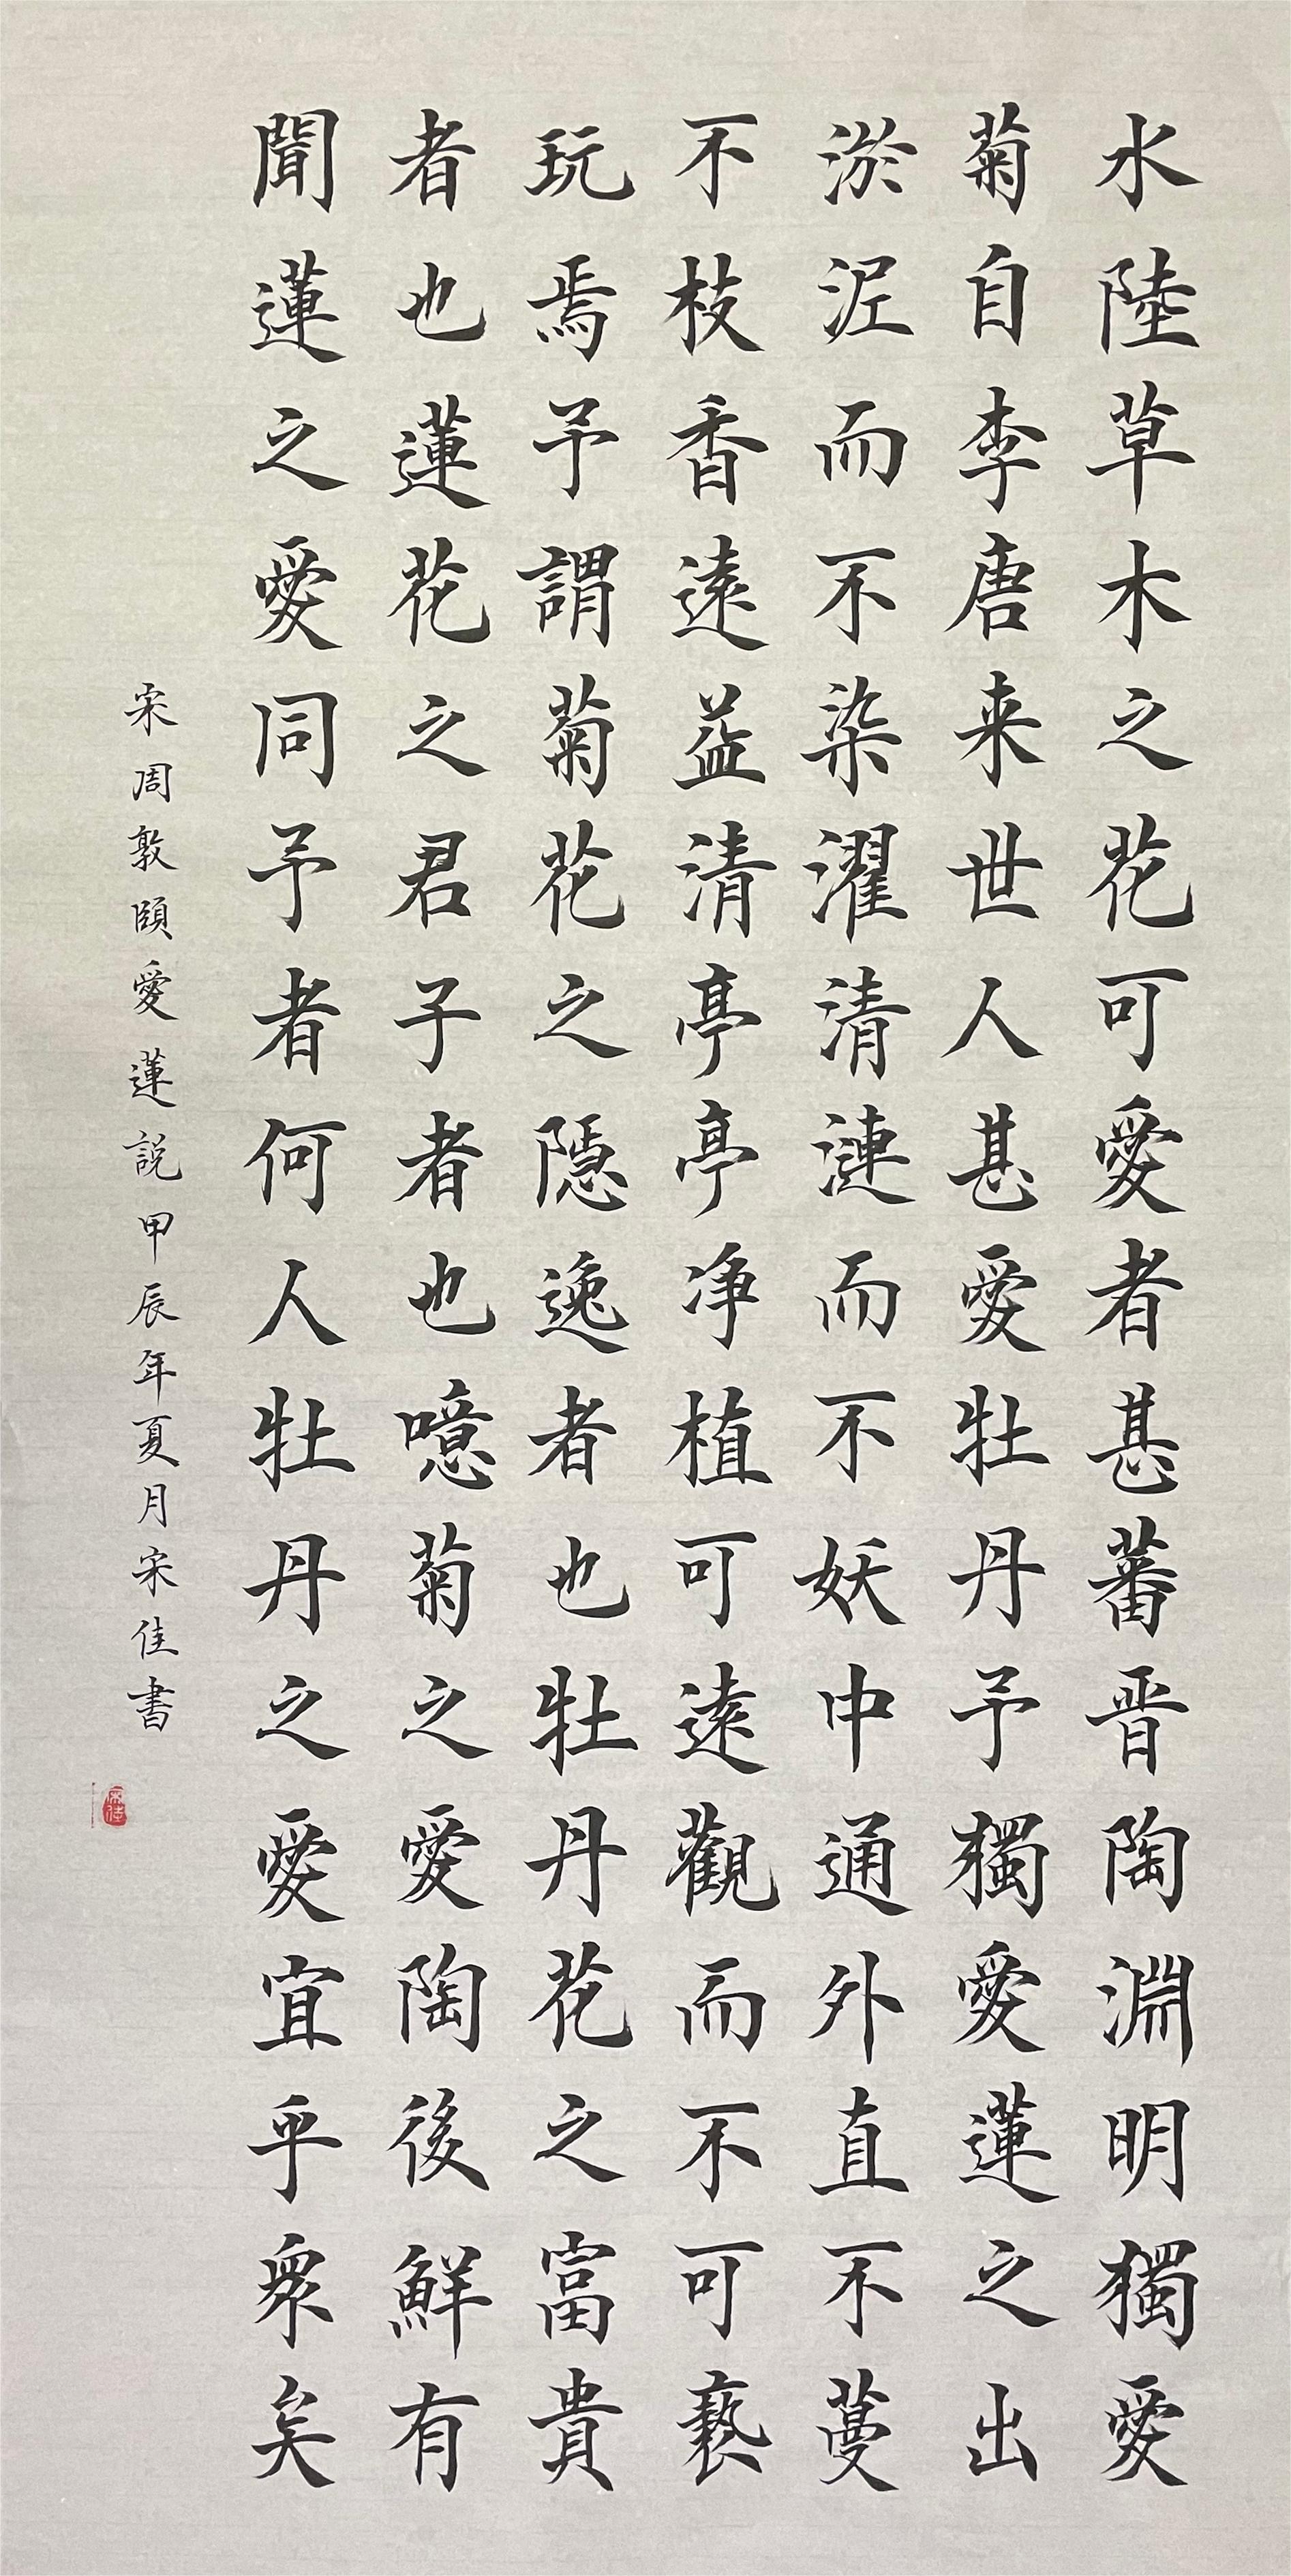 水陸草木之花可愛者甚蕃晋陶淵明獨愛
菊自李唐来世人甚愛牡丹予獨愛蓮之出
淤泥而不染濯清漣而不妖中通外直不蔓
不枝香遠益清亭亭净植可遠觀而不可褻
玩焉予謂菊花之隱逸者也牡丹花之富貴
者也蓮花之君子者也噫菊之愛陶後鮮有
聞蓮之愛同予者何人牡丹之愛宜乎衆矣
宋周敦頤愛蓮説甲辰年夏月宋佳書
宋佳